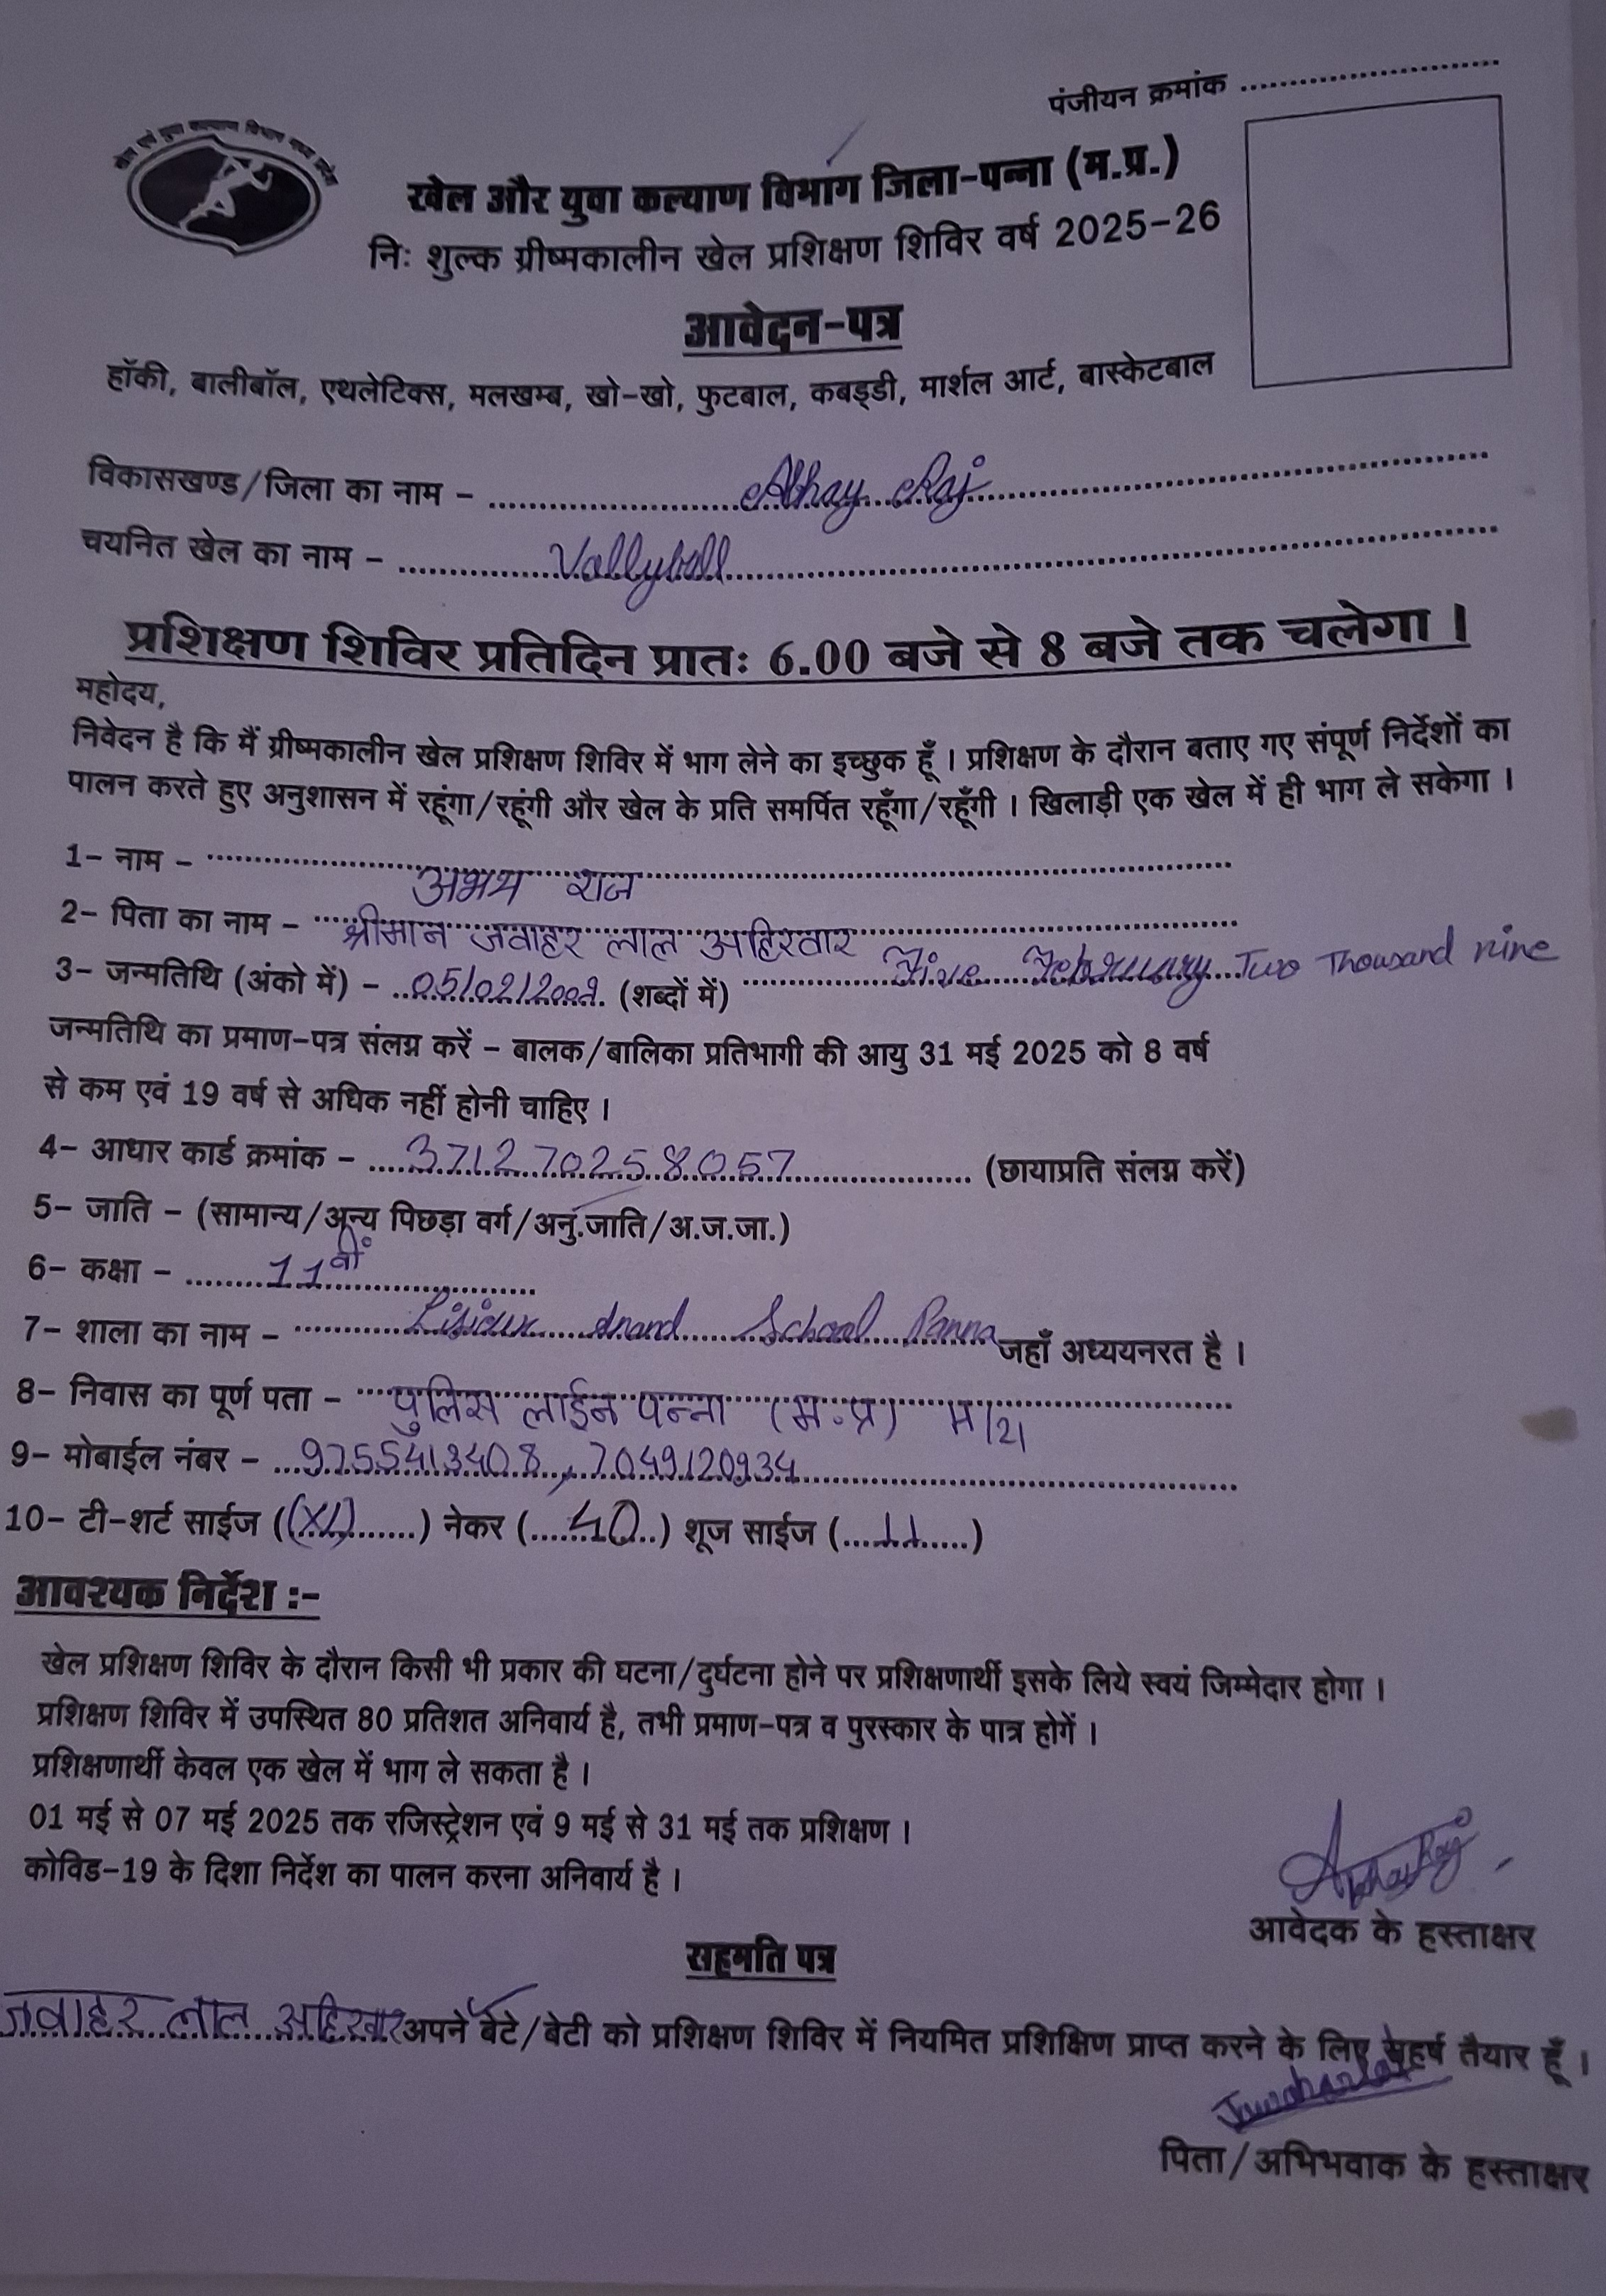 पंजीयन क्रमांक ..............................
खेल एवं युवा कल्याण विभाग मध्य प्रदेश
खेल और युवा कल्याण विभाग जिला-पन्ना (म.प्र.)
निः शुल्क ग्रीष्मकालीन खेल प्रशिक्षण शिविर वर्ष 2025-26
आवेदन-पत्र
हॉकी, बालीबॉल, एथलेटिक्स, मलखम्ब, खो-खो, फुटबाल, कबड्डी, मार्शल आर्ट, बास्केटबाल
विकासखण्ड/जिला का नाम - Abhay Raj
चयनित खेल का नाम - Vollyball
प्रशिक्षण शिविर प्रतिदिन प्रातः 6.00 बजे से 8 बजे तक चलेगा।
महोदय,
निवेदन है कि मैं ग्रीष्मकालीन खेल प्रशिक्षण शिविर में भाग लेने का इच्छुक हूँ। प्रशिक्षण के दौरान बताए गए संपूर्ण निर्देशों का
पालन करते हुए अनुशासन में रहूंगा/रहूंगी और खेल के प्रति समर्पित रहूँगा/रहूँगी। खिलाड़ी एक खेल में ही भाग ले सकेगा।
1- नाम - अभय राज
2- पिता का नाम - श्रीमान जवाहर लाल अहिरवार
3- जन्मतिथि (अंको में) - 05/02/2009 (शब्दों में) Five February Two Thousand nine
जन्मतिथि का प्रमाण-पत्र संलग्न करें - बालक/बालिका प्रतिभागी की आयु 31 मई 2025 को 8 वर्ष
से कम एवं 19 वर्ष से अधिक नहीं होनी चाहिए।
4- आधार कार्ड क्रमांक - 371270258057 (छायाप्रति संलग्न करें)
5- जाति - (सामान्य/अन्य पिछड़ा वर्ग/अनु.जाति/अ.ज.जा.)
6- कक्षा - 11वीं
7- शाला का नाम - Lisieux Anand School Panna जहाँ अध्ययनरत है।
8- निवास का पूर्ण पता - पुलिस लाईन पन्ना (म.प्र) म/21
9- मोबाईल नंबर - 9755413408, 7049120934
10- टी-शर्ट साईज ((XL)) नेकर (40) शूज साईज (11)
आवश्यक निर्देश :-
खेल प्रशिक्षण शिविर के दौरान किसी भी प्रकार की घटना/दुर्घटना होने पर प्रशिक्षणार्थी इसके लिये स्वयं जिम्मेदार होगा।
प्रशिक्षण शिविर में उपस्थित 80 प्रतिशत अनिवार्य है, तभी प्रमाण-पत्र व पुरस्कार के पात्र होगें।
प्रशिक्षणार्थी केवल एक खेल में भाग ले सकता है।
01 मई से 07 मई 2025 तक रजिस्ट्रेशन एवं 9 मई से 31 मई तक प्रशिक्षण।
कोविड-19 के दिशा निर्देश का पालन करना अनिवार्य है।
Abhay Raj
आवेदक के हस्ताक्षर
सहमति पत्र
जवाहर लाल अहिरवार अपने बेटे/बेटी को प्रशिक्षण शिविर में नियमित प्रशिक्षिण प्राप्त करने के लिए सहर्ष तैयार हूँ।
Jawaharlal
पिता/अभिभवाक के हस्ताक्षर